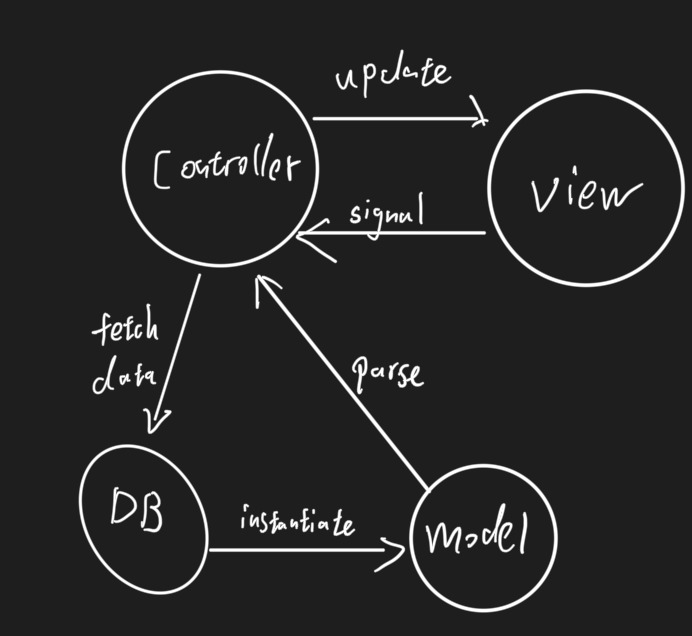 update
Controller
view
signal
fetch
data
parse
DB
instantiate
model